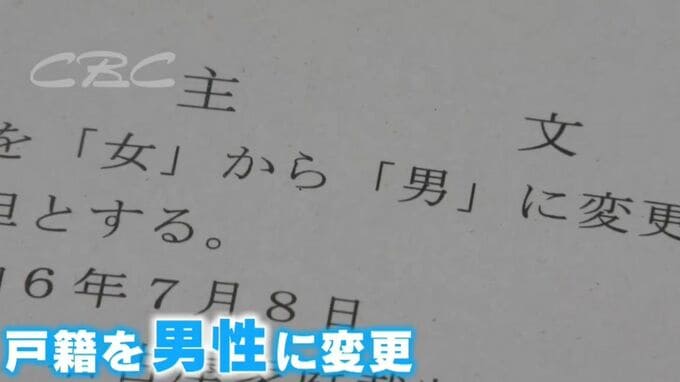 CBC
主 文
を「女」から「男」に変更
旦とする。
16年7月8日
戸籍を男性に変更